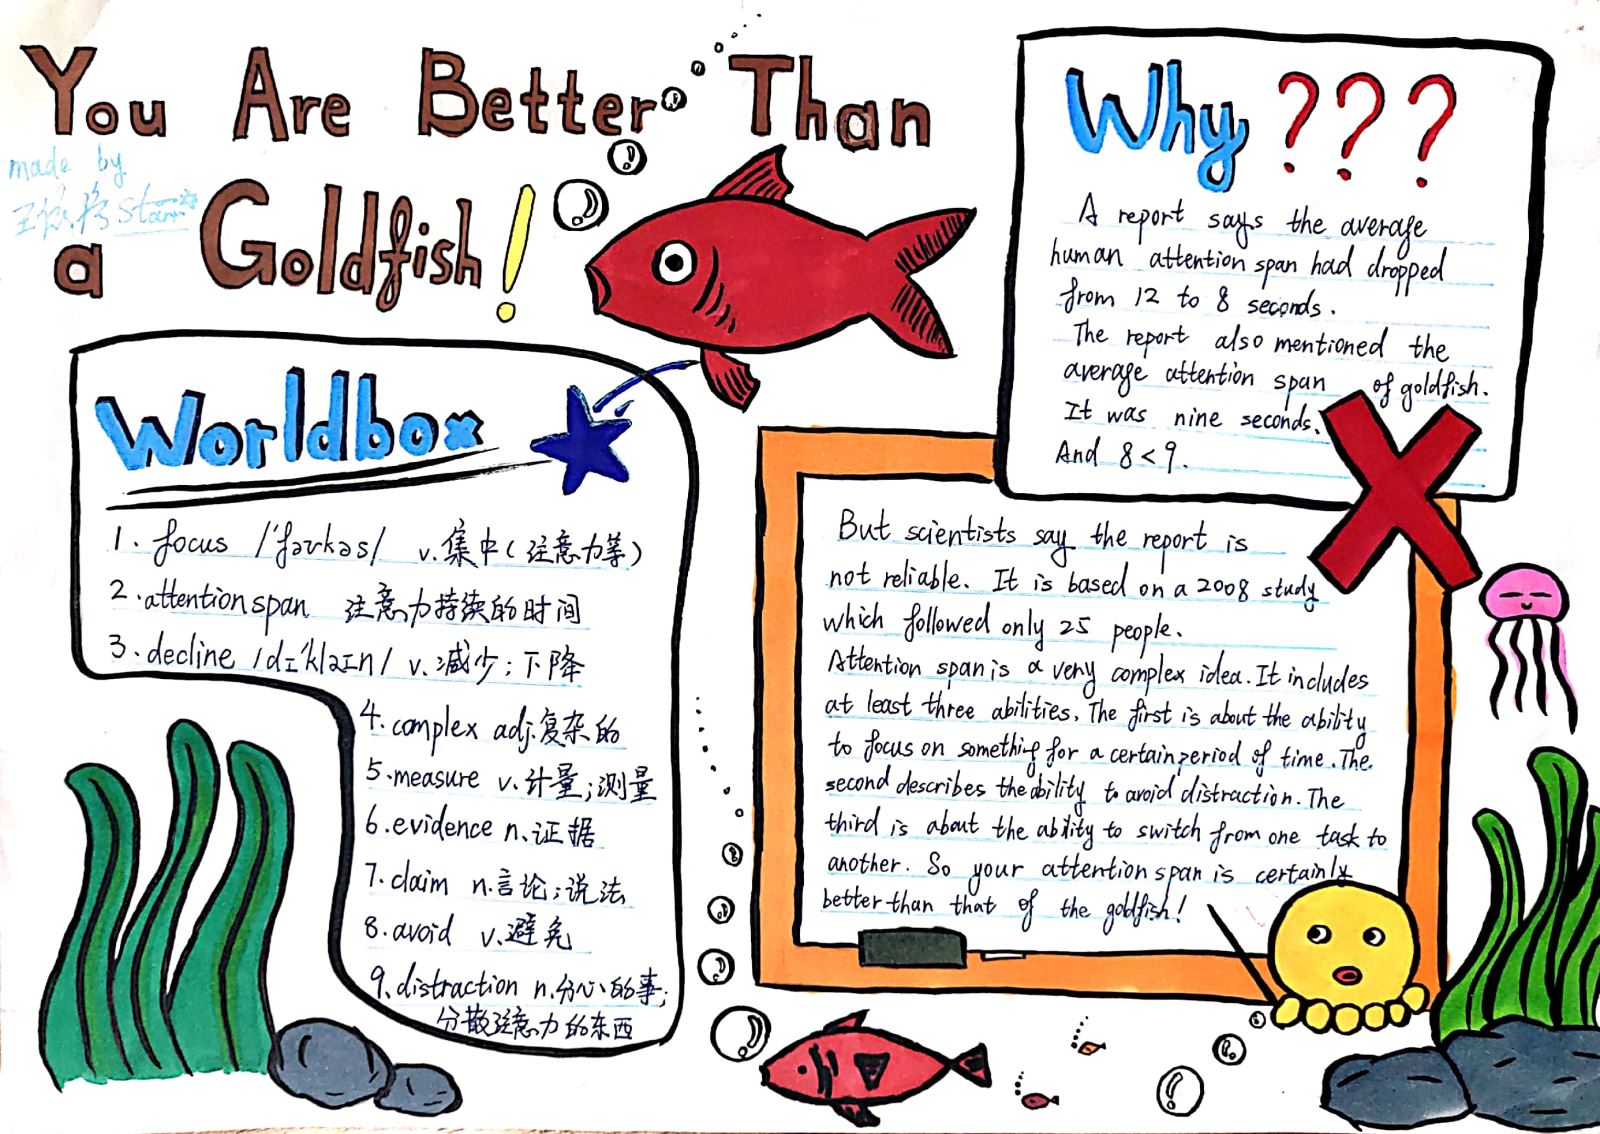 You Are Better Than
a Goldfish!
made by
Starr
Why ???
A report says the average
human attention span had dropped
from 12 to 8 seconds.
The report also mentioned the
average attention span of goldfish.
It was nine seconds.
And 8<9.
Worldbox
1. focus /'fəʊkəs/ v.集中(注意力等)
2.attention span 注意力持续的时间
3.decline /dɪ'klaɪn/ v.减少;下降
4.complex adj.复杂的
5.measure v.计量;测量
6.evidence n.证据
7.claim n.言论;说法
8.avoid v.避免
9.distraction n.分心的事;
分散注意力的东西
But scientists say the report is
not reliable. It is based on a 2008 study
which followed only 25 people.
Attention span is a very complex idea. It includes
at least three abilities. The first is about the ability
to focus on something for a certain period of time. The
second describes the ability to avoid distraction. The
third is about the ability to switch from one task to
another. So your attention span is certainly
better than that of the goldfish!